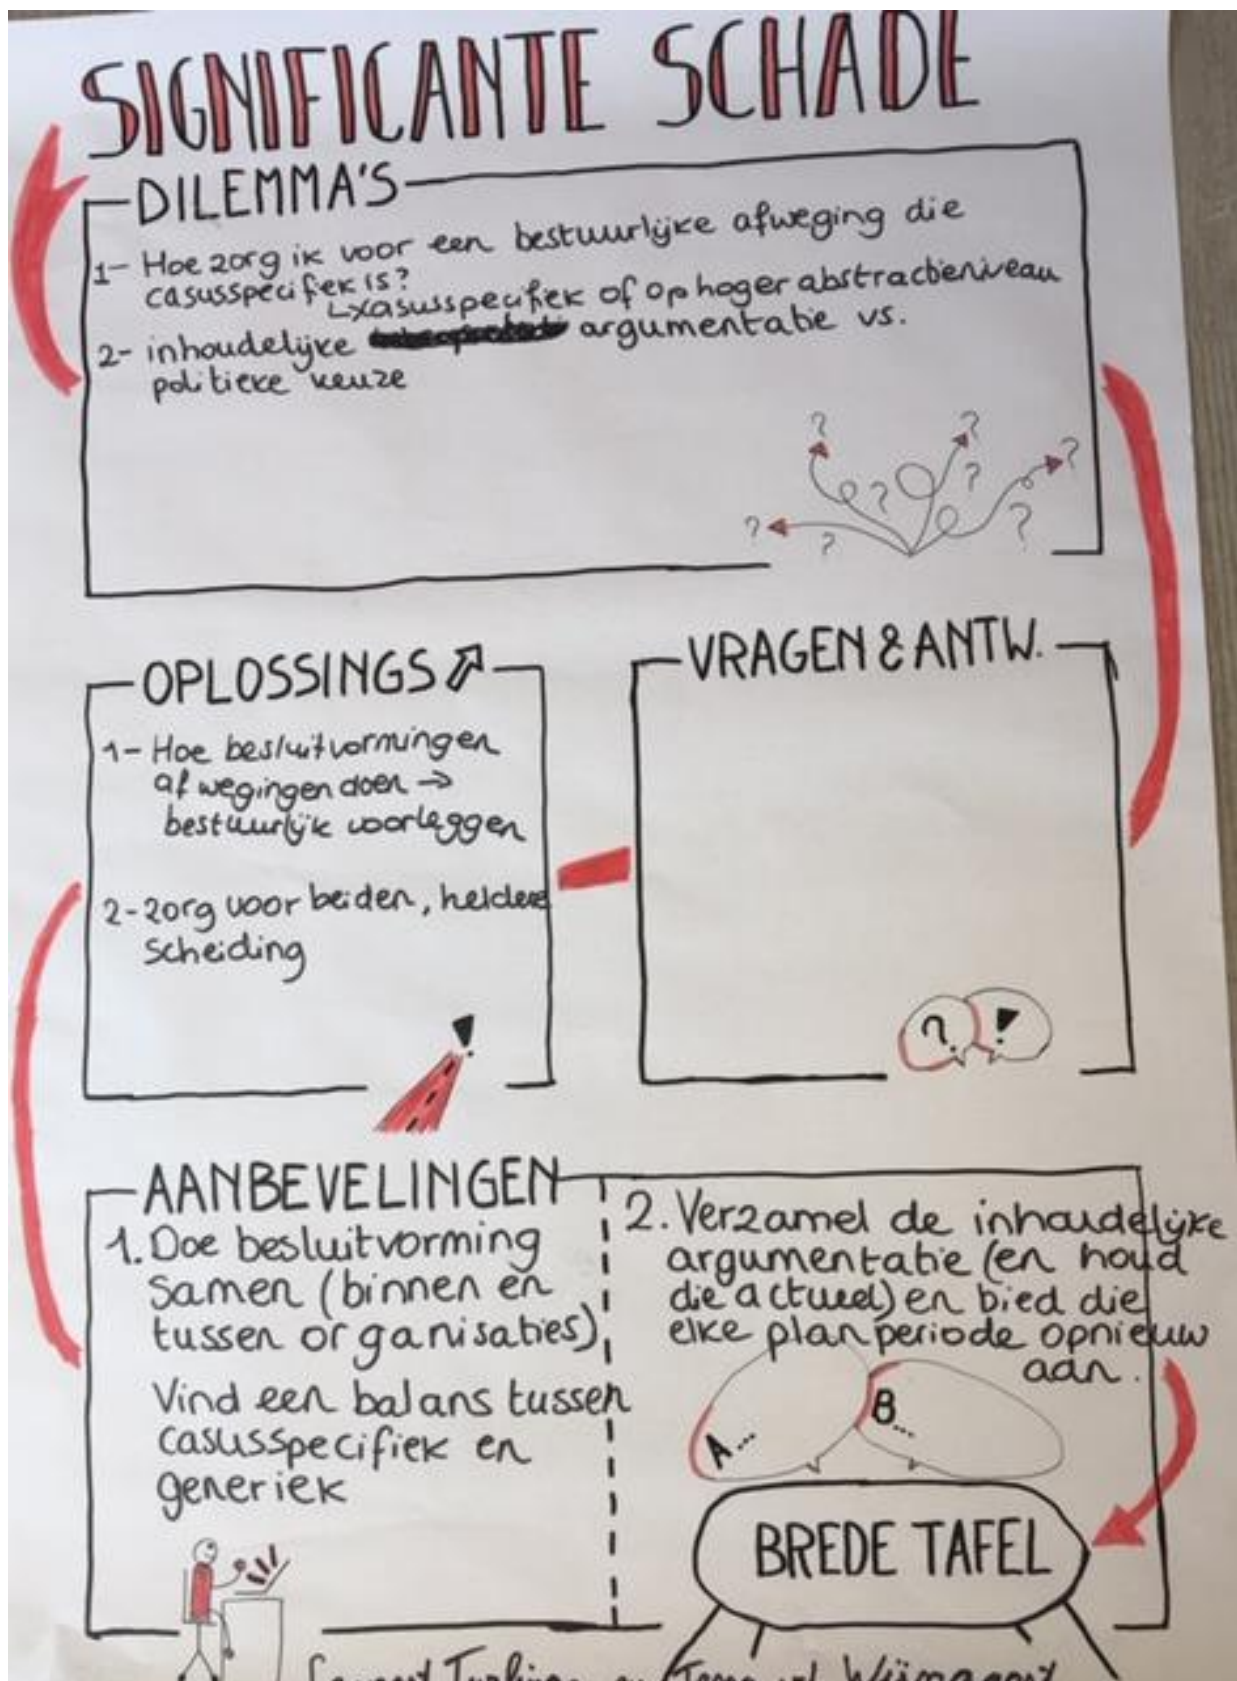 SIGNIFICANTE SCHADE
DILEMMA'S
1- Hoe zorg ik voor een bestuurlijke afweging die
casusspecifiek is?
↳ casusspecifiek of op hoger abstractieniveau
2- inhoudelijke argumentatie vs.
politieke keuze
? ? ?
? ? ?
? ?
OPLOSSINGS
1- Hoe besluitvormingen
afwegingen doen →
bestuurlijk voorleggen
2- zorg voor beiden, heldere
scheiding
!
VRAGEN & ANTW.
? !
AANBEVELINGEN
1. Doe besluitvorming
samen (binnen en
tussen organisaties)
Vind een balans tussen
casusspecifiek en
generiek
2. Verzamel de inhoudelijke
argumentatie (en houd
die actueel) en bied die
elke planperiode opnieuw
aan.
A...
B...
BREDE TAFEL